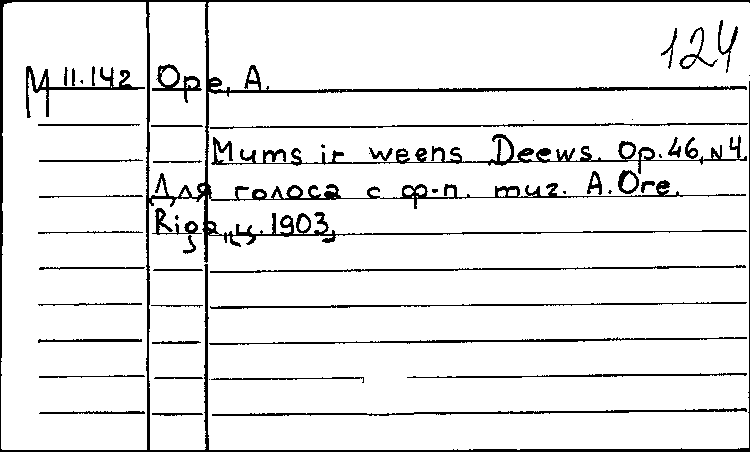 124
М 11.142 Оре, А.
Mums ir weens Deews. Op.46, N4.
Для голоса с ф-п. muz. A. Ore.
Riga, ц. 1903,